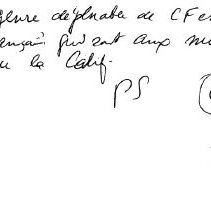 genre déplorable de CF es
ançais qui sont aux mi
u la Calif.
PS